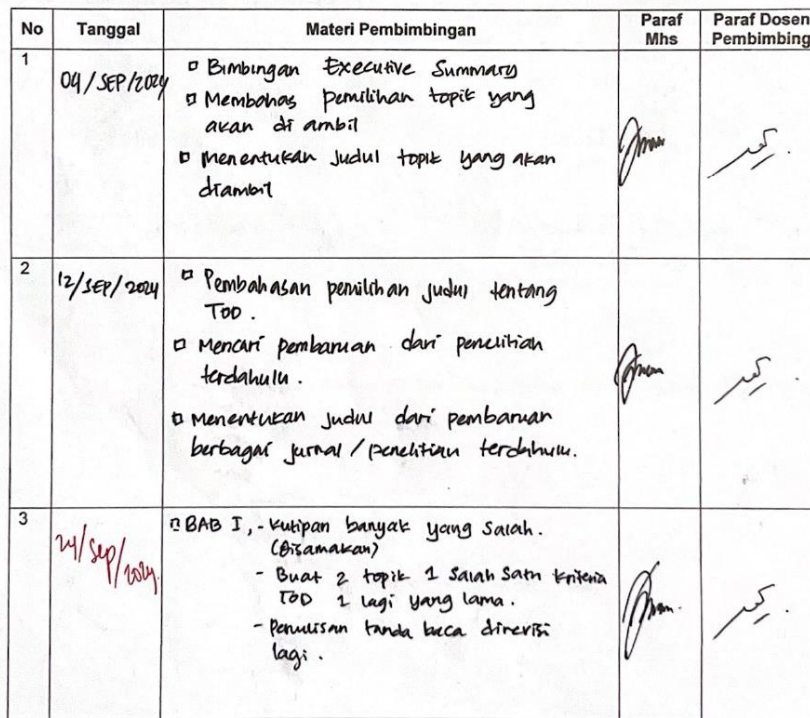 No Tanggal Materi Pembimbingan Paraf Mhs Paraf Dosen Pembimbing
1
04/SEP/2024
▫ Bimbingan Executive Summary
▫ Membahas pemilihan topik yang
akan di ambil
▫ Menentukan judul topik yang akan
diambil
2
12/SEP/2024
▫ Pembahasan pemilihan judul tentang
TOD.
▫ Mencari pembaruan dari penelitian
terdahulu.
▫ Menentukan judul dari pembaruan
berbagai jurnal / penelitian terdahulu.
3
24/Sep/2024.
▫ BAB I, - Kutipan banyak yang salah.
(Disamakan)
- Buat 2 topik 1 salah satu kriteria
TOD 1 lagi yang lama.
- Penulisan tanda baca direvisi
lagi.